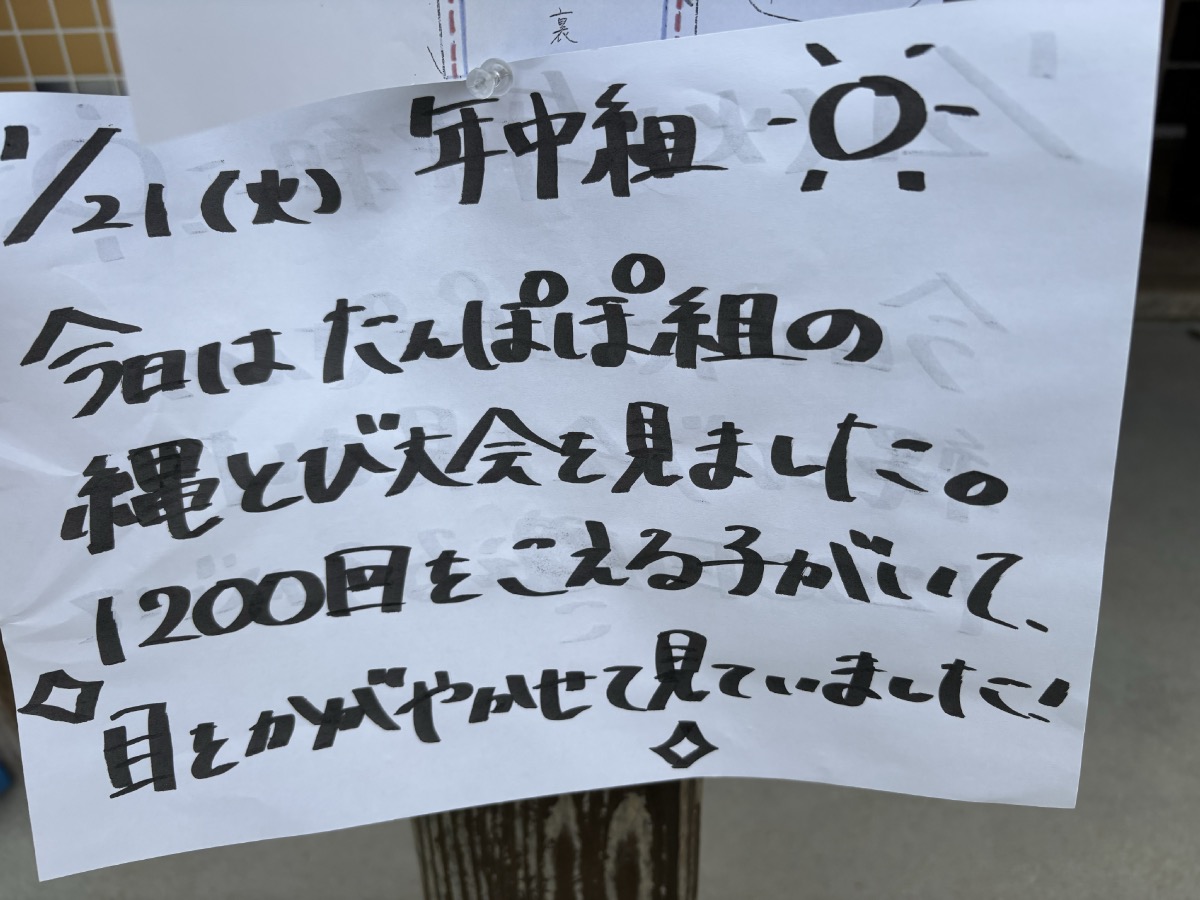 裏
/21(火) 年中組
今日はたんぽぽ組の
縄とび大会を見ました。
1200回をこえる子がいて、
目をかがやかせて見ていました!